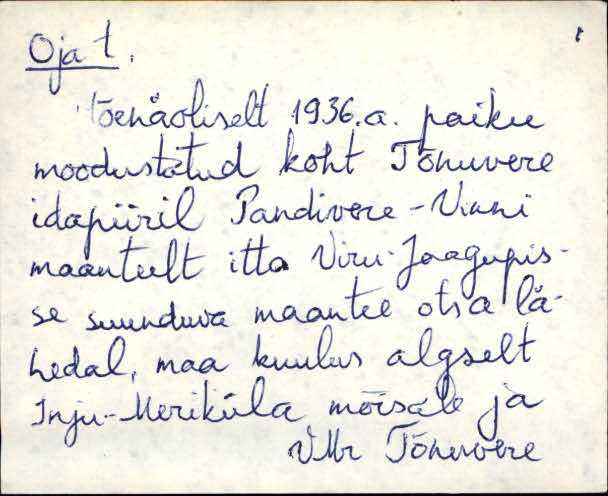 Oja t.
Tõenäoliselt 1936.a. paiku
moodustatud koht Tõnuvere
idapiiril Pandivere-Vinni
maanteelt itta Viru-Jaagupis-
se suunduva maantee otsa lä-
hedal, maa kuulus algselt
Inju-Meriküla mõisale ja
VMr Tõnuvere